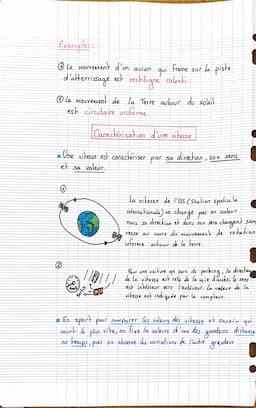 Exemples:
① Le mouvement d'un avion qui freine sur la piste
d'atterrissage est rectiligne ralenti.
② Le mouvement de la Terre autour du soleil
est circulaire uniforme.
Caractérisation d'une vitesse
Une vitesse est caractériser par sa direction, son sens
et sa valeur.
①
La vitesse de l'ISS (Station spatiale
internationale) ne change pas en valeur
mais sa direction et donc son sens changent sans
cesse au cours du mouvement de rotation
uniforme autour de la terre.
②
Pour une voiture qui sors du parking, la direction
de la vitesse est celle de la voie d'accès. le sens
est intérieur vers l'extérieur. La valeur de la
vitesse est indiquée par le compteur.
En sport pour comparer les valeurs des vitesses et savoir qui
court le plus vite, on fixe la valeurs d'une des grandeurs distance
ou temps, puis on observe les variations de l'autre grandeur